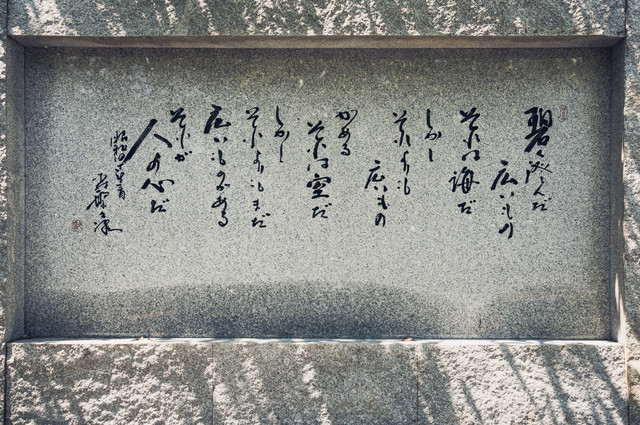 碧く澄んだ
広いもの
それは海だ
しかし
それよりも
広いもの
がある
それは空だ
しかし
それよりもまだ
広いものがある
それが
人の心だ
昭和